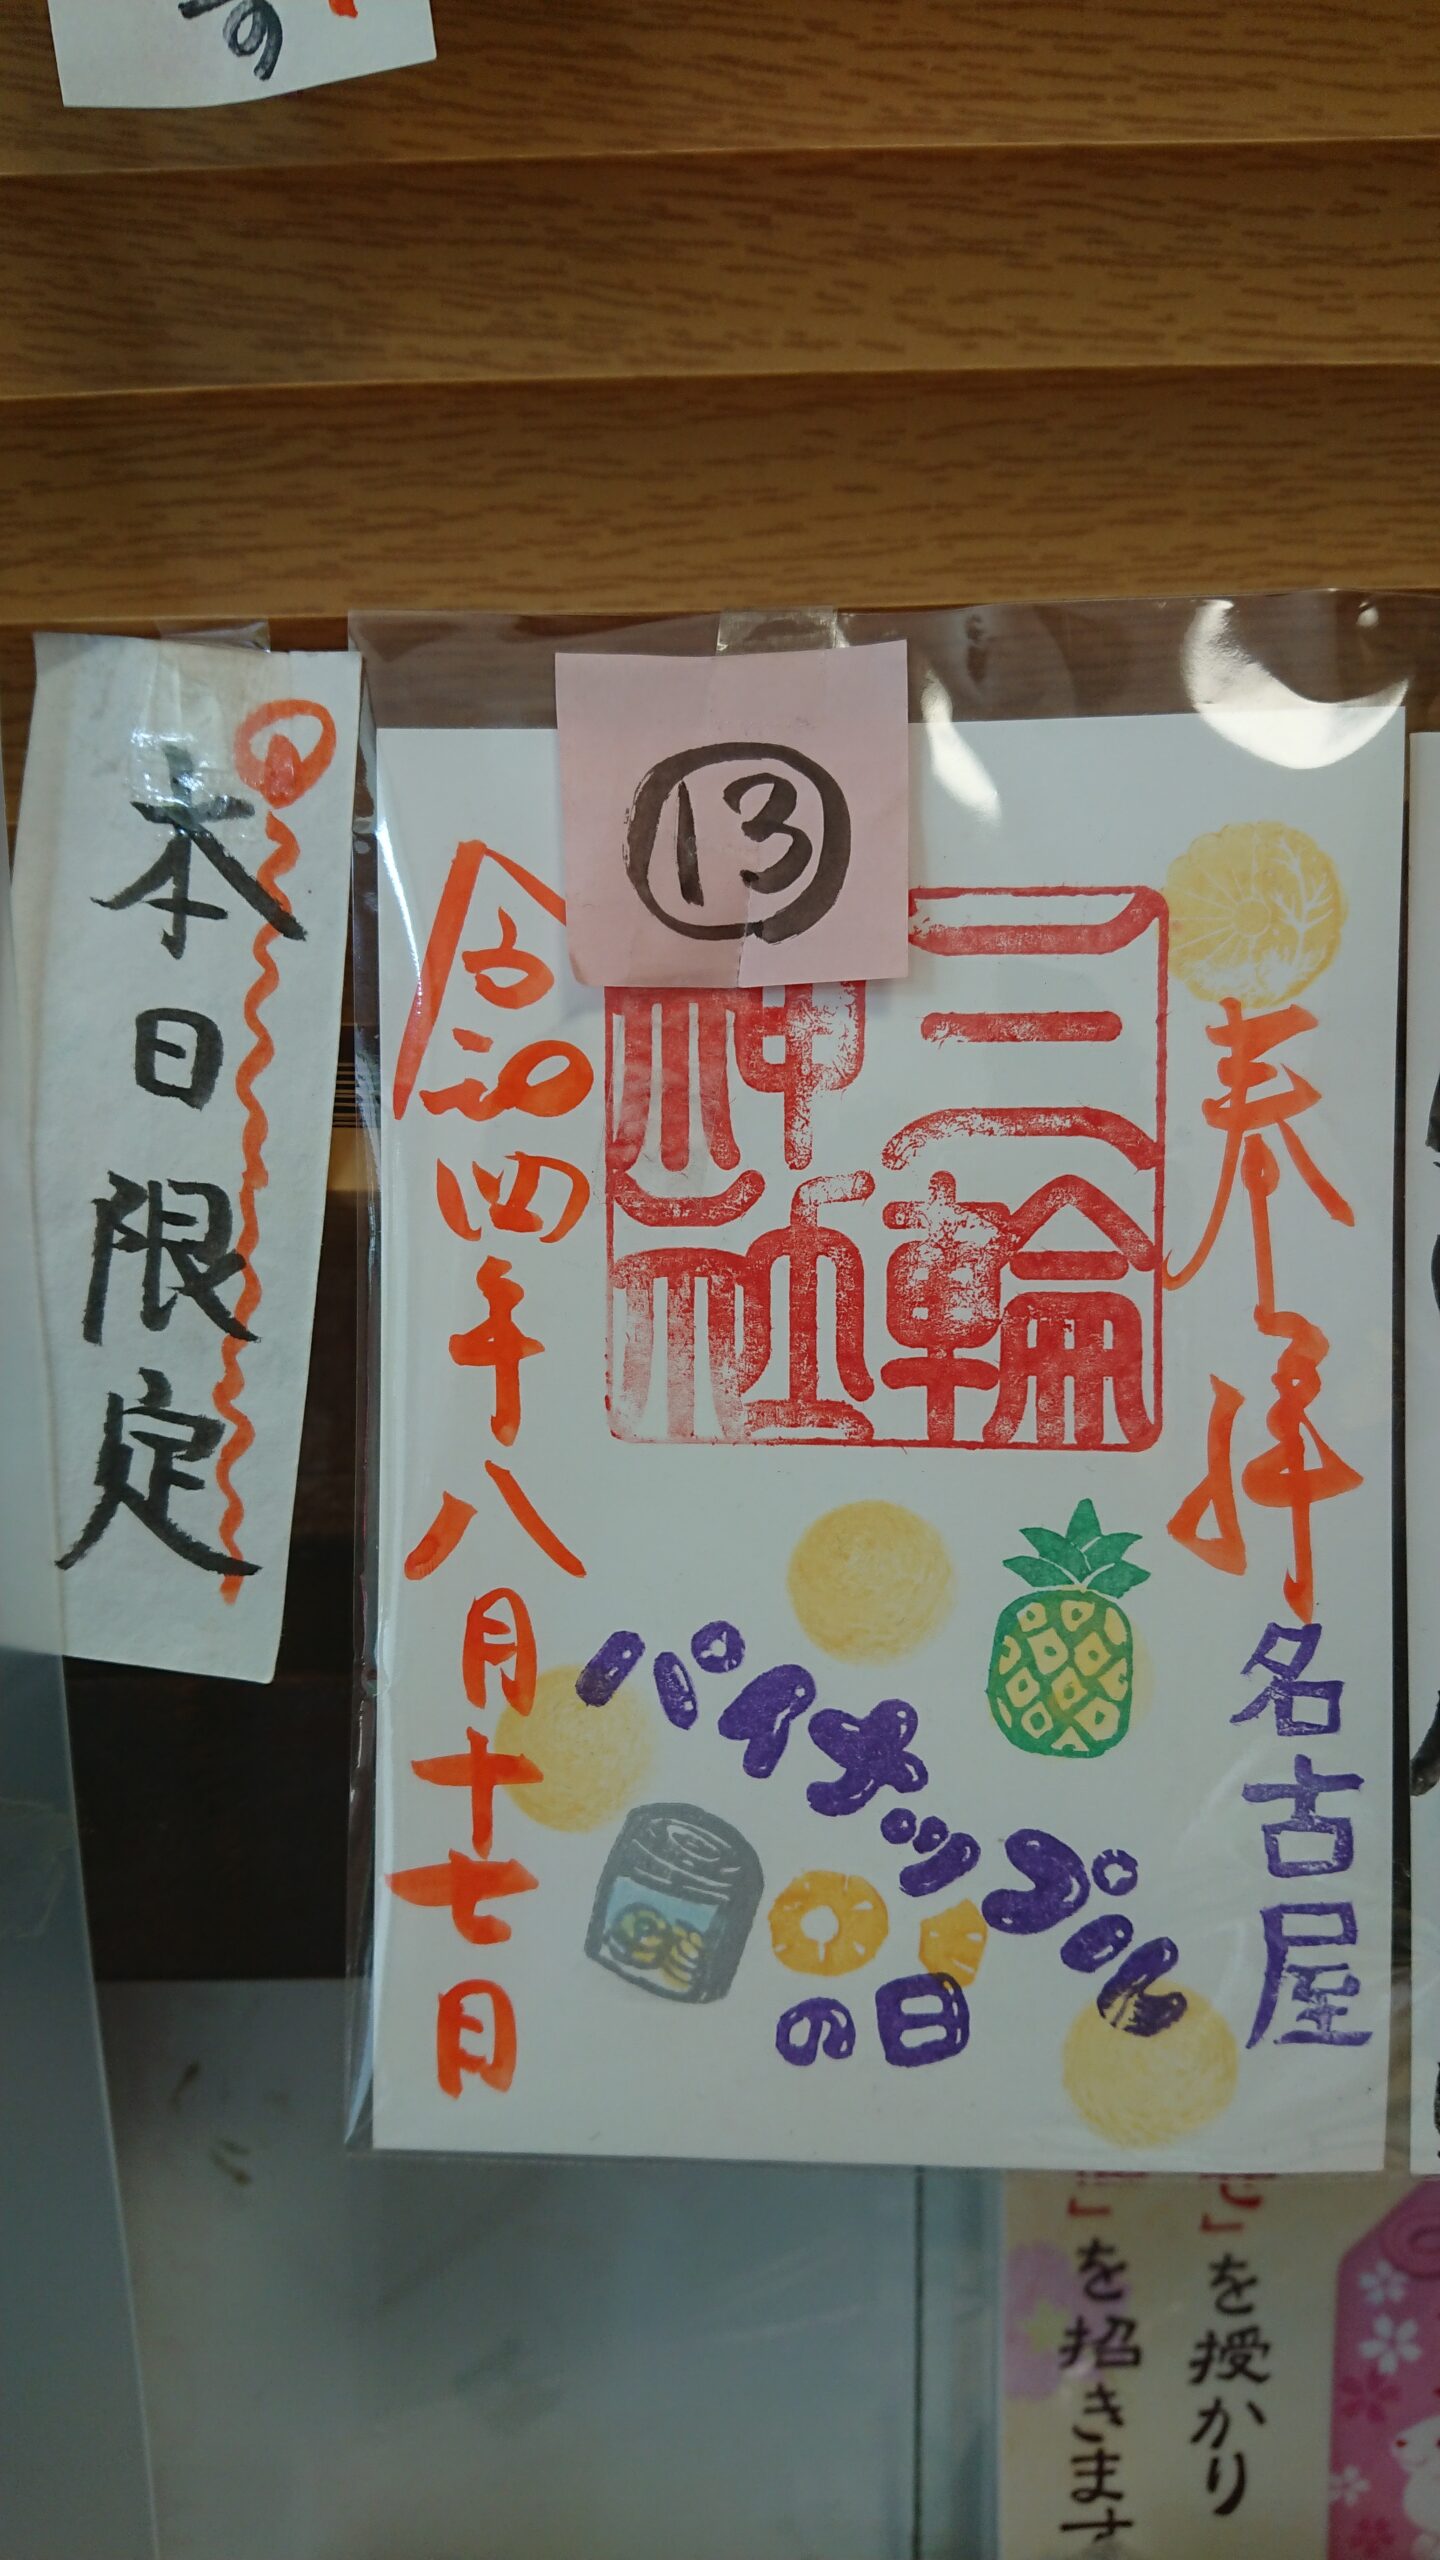 す
本日限定
⑬
奉拝
名古屋
三輪
神社
パイナップルの日
令和四年八月十七日
」を授かり
」を招きます